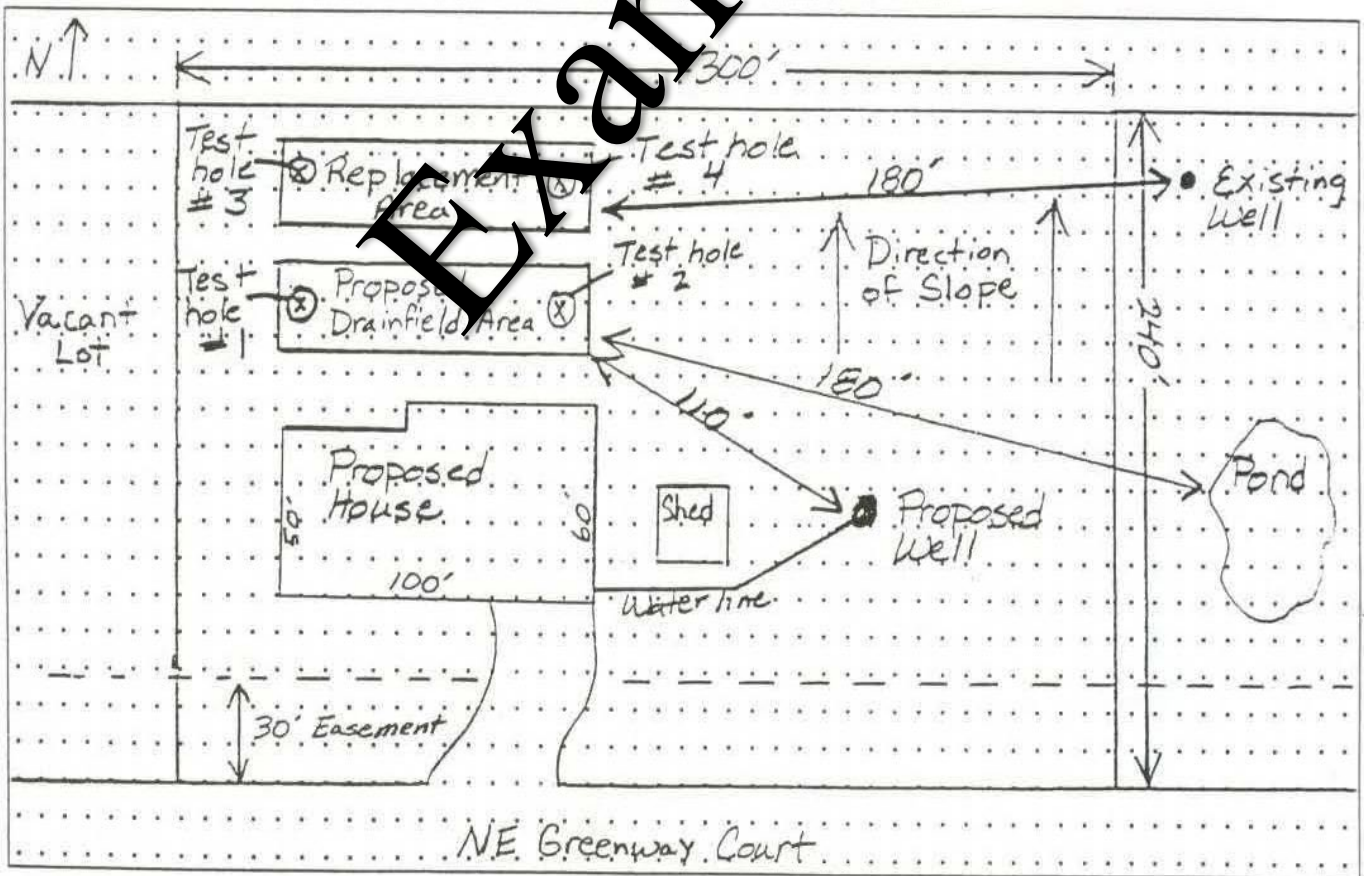 N
300'
Test
hole
# 3
Replacement
Area
Test hole
# 4
180'
Existing
Well
Exa
Vacant
Lot
Test
hole
#1
Propos
Drainfield Area
Test hole
# 2
Direction
of Slope
240'
180'
110'
Proposed
House
50'
60'
100'
Shed
Proposed
Well
Pond
Water line
30' Easement
NE Greenway Court